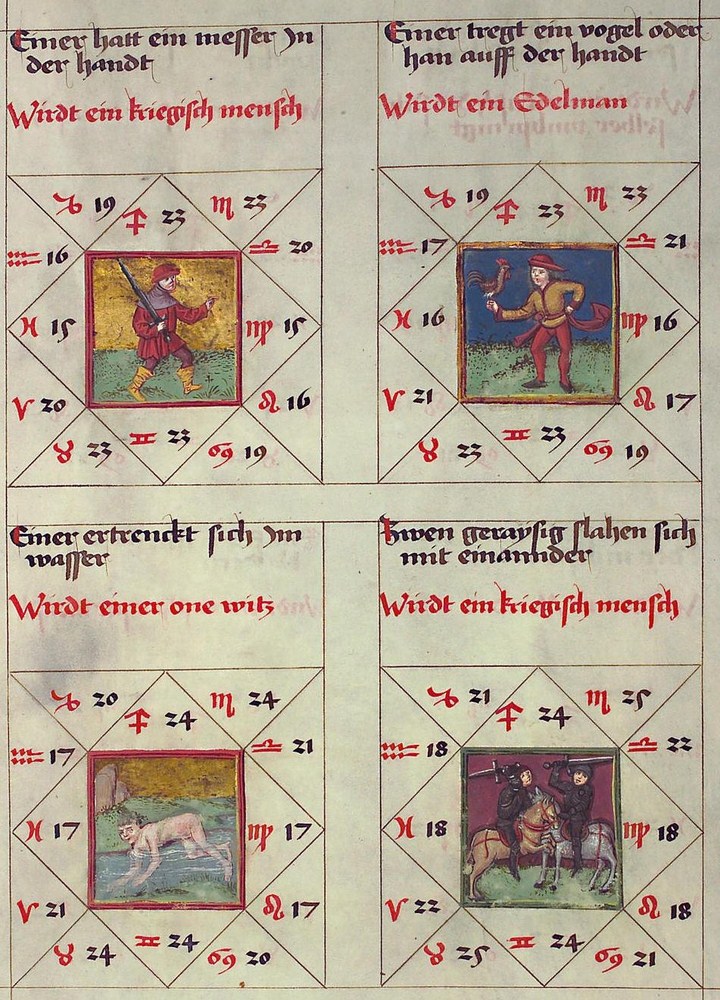 Einer hatt ein messer Jn
der handt
Wirdt ein kriegisch mensch
♑ 19
♐ 23
♏ 23
♒ 16
♎ 20
♓ 15
♍ 15
♈ 20
♌ 16
♉ 23
♊ 23
♋ 19
Einer tregt ein vogel oder
han auff der handt
Wirdt ein Edelman
♑ 19
♐ 23
♏ 23
♒ 17
♎ 21
♓ 16
♍ 16
♈ 21
♌ 17
♉ 23
♊ 23
♋ 19
Einer ertrenckt sich Jm
wasser
Wirdt einer one witz
♑ 20
♐ 24
♏ 24
♒ 17
♎ 21
♓ 17
♍ 17
♈ 21
♌ 17
♉ 24
♊ 24
♋ 20
Zwen geraysig slahen sich
mit einannder
Wirdt ein kriegisch mensch
♑ 21
♐ 24
♏ 25
♒ 18
♎ 22
♓ 18
♍ 18
♈ 22
♌ 18
♉ 25
♊ 24
♋ 21